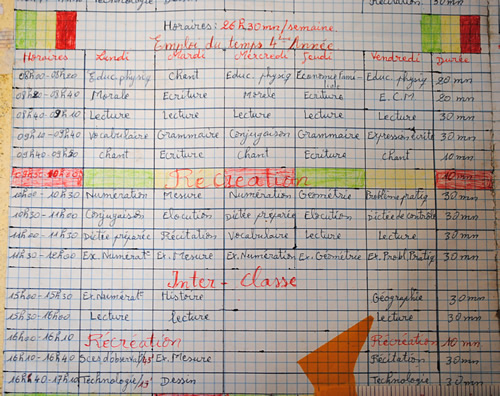 Technologie
Dessin
Récitation 30mn
Horaires: 26h30mn/semaine
Emploi du temps 4ème Année
Horaires Lundi Mardi Mercredi Jeudi Vendredi Durée
08h00-08h20 Educ. physiq Chant Educ. physiq Economie fami- Educ. physiq 20 mn
08h20-08h40 Morale Ecriture Morale Ecriture E.C.M 20 mn
08h40-09h10 Lecture Lecture Lecture Lecture Lecture 30 mn
09h10-09h40 Vocabulaire Grammaire Conjugaison Grammaire Expression écrite 30 mn
Chant Ecriture Chant Ecriture Chant 10 mn
Récréation 10 mn
10h00-10h30 Numération Mesure Numération Géométrie Problème pratiq 30 mn
10h30-11h00 Conjugaison Elocution Dictée préparée Elocution Dictée de contrôle 30 mn
11h00-11h30 Dictée préparée Récitation Vocabulaire Lecture Lecture 30 mn
11h30-12h00 Ex. Numérat° Ex. Mesure Ex. Numération Ex. Géométrie Ex. Probl. Pratiq 30 mn
Inter-Classe
15h00-15h30 Ex. Numérat° Histoire Géographie 30 mn
15h30-16h00 Lecture Lecture Lecture 30 mn
16h00-16h10 Récréation Récréation 10 mn
16h10-16h40 Sces d'observat/15' Ex. Mesure Récitation 30 mn
16h40-17h10 Technologie/15' Dessin Technologie 30 mn